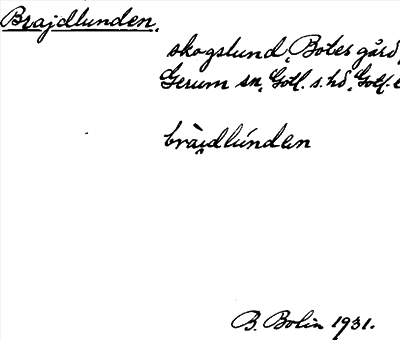 Brajdlunden,
skogslund, Botes gård,
Gerum sn, Gotl. s. hd, Gotl.
bràidlúnden
B. Bolin 1931.